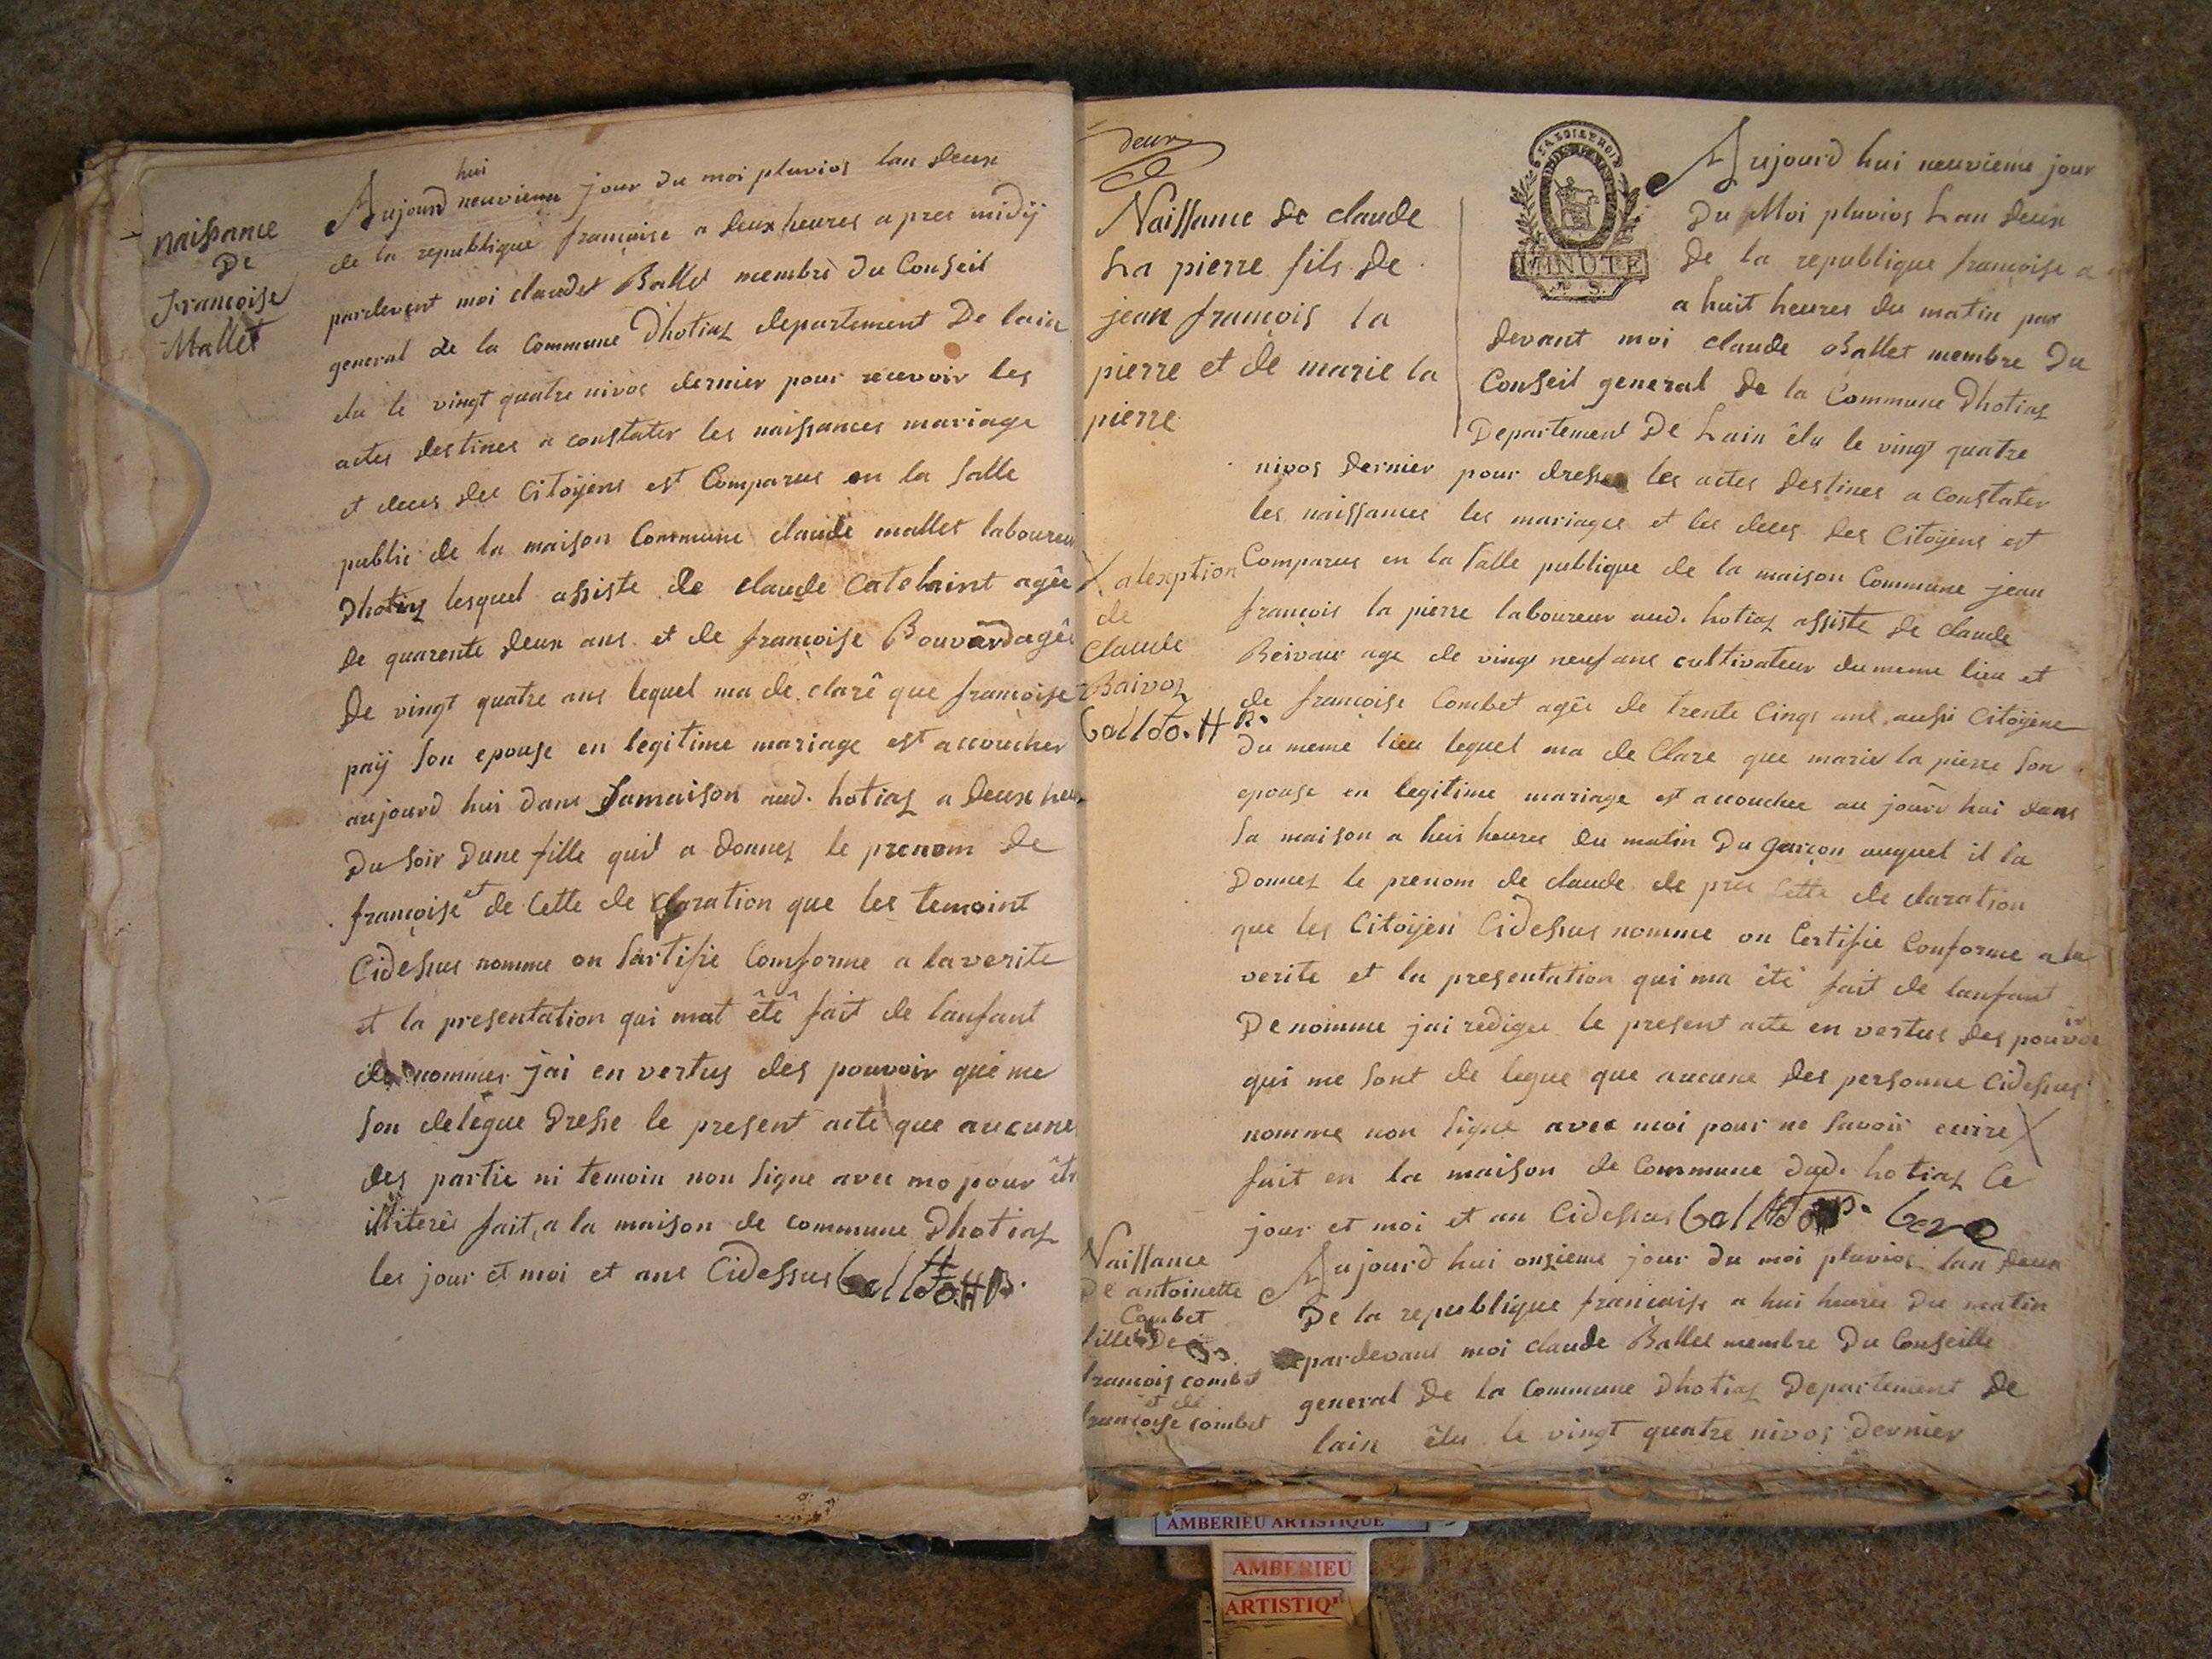 naissance
De
françoise
Mallet
hui
Aujourd neuvieme jour du moi pluvios lan deux
de la republique françoise a deux heures apres midÿ
pardevent moi claudet Ballet membre du Conseil
general de la Commune Dhotiaz departement De lain
elu le vingt quatre nivos dernier pour recevoir les
actes destines a constater les naissances mariage
et deces des Citoÿens est Comparus en la salle
public de la maison Commune claude mallet laboureur
Dhotiaz lesquel assiste de claude Catelaint agêe
De quarente deux ans et de françoise Bouvard agêe
De vingt quatre ans lequel ma de clarê que françoise
paÿ son epouse en legitime mariage est accoucher
aujourd hui dans samaison aud. hotiaz a deux heu
Du soir Dune fille quil a donnez le prenom de
françoise et de Cette de claration que les temoint
Cidessus nomme on sartifie Comforme a la verite
et la presentation qui mat êtê fait de lanfant
de nommer jai en vertus des pouvoir que me
son delegue Dresse le present acte que aucune
des partie ni temoin non signe avec mo pour êtr
illiterè fait, a la maison de commune Dhotiaz
les jour et moi et ans Cidessus
deux
Naissance de claude
La pierre fils de
jean francois la
pierre et de marie la
pierre
MINUTE
Aujourd hui neuvieme jour
Du Moi pluvios Lan deux
de la republique françoise
a huit heures du matin par
devant moi claude Ballet membre Du
Conseil general de la Commune Dhotiaz
Departement De Lain êlu le vingt quatre
nivos dernier pour dresser les actes destines a constater
les naissances les mariages et les deces des Citoÿens est
Comparus en la salle publique de la maison Commune jean
francois la pierre laboureur aud. hotiaz assiste de claude
age de vingt neuf ans cultivateur du meme lieu et
de françoise Combet agêe de trente Cinqs ans aussi Citoÿene
du meme lieu lequel ma de Clare que marie la pierre son
epouse en legitime mariage est accouchee au jourd hui dans
sa maison a huis heures du matin Du garcon auquel il la
Donnez le prenom de claude de Cette de claration
que les Citoÿen Cidessus nomme on Certifie Conforme a la
verite et la presentation qui ma êtê fait de lanfant
De nomme jai rediger le present acte en vertus des pouvoir
qui me sont de legue que aucune des personne Cidessus
nomme non signe avec moi pour ne savoir ecrire X
fait en la maison de Commune dud. hotiaz Ce
jour et moi et an Cidessus
X alexption
de
Claude
Baivoz
Naissance
De antoinette
Combet
fille De
francois combet
et de
francoise combet
Aujourd hui onzieme jour du moi pluvios lan deux
De la republique francaise a hui heures Du matin
pardevant moi claude Ballet membre Du Conseille
general De la Commune Dhotiaz Departement De
lain êlu le vingt quatre nivos Dernier
AMBERIEU ARTISTIQUE
AMBERIEU
ARTISTIQ